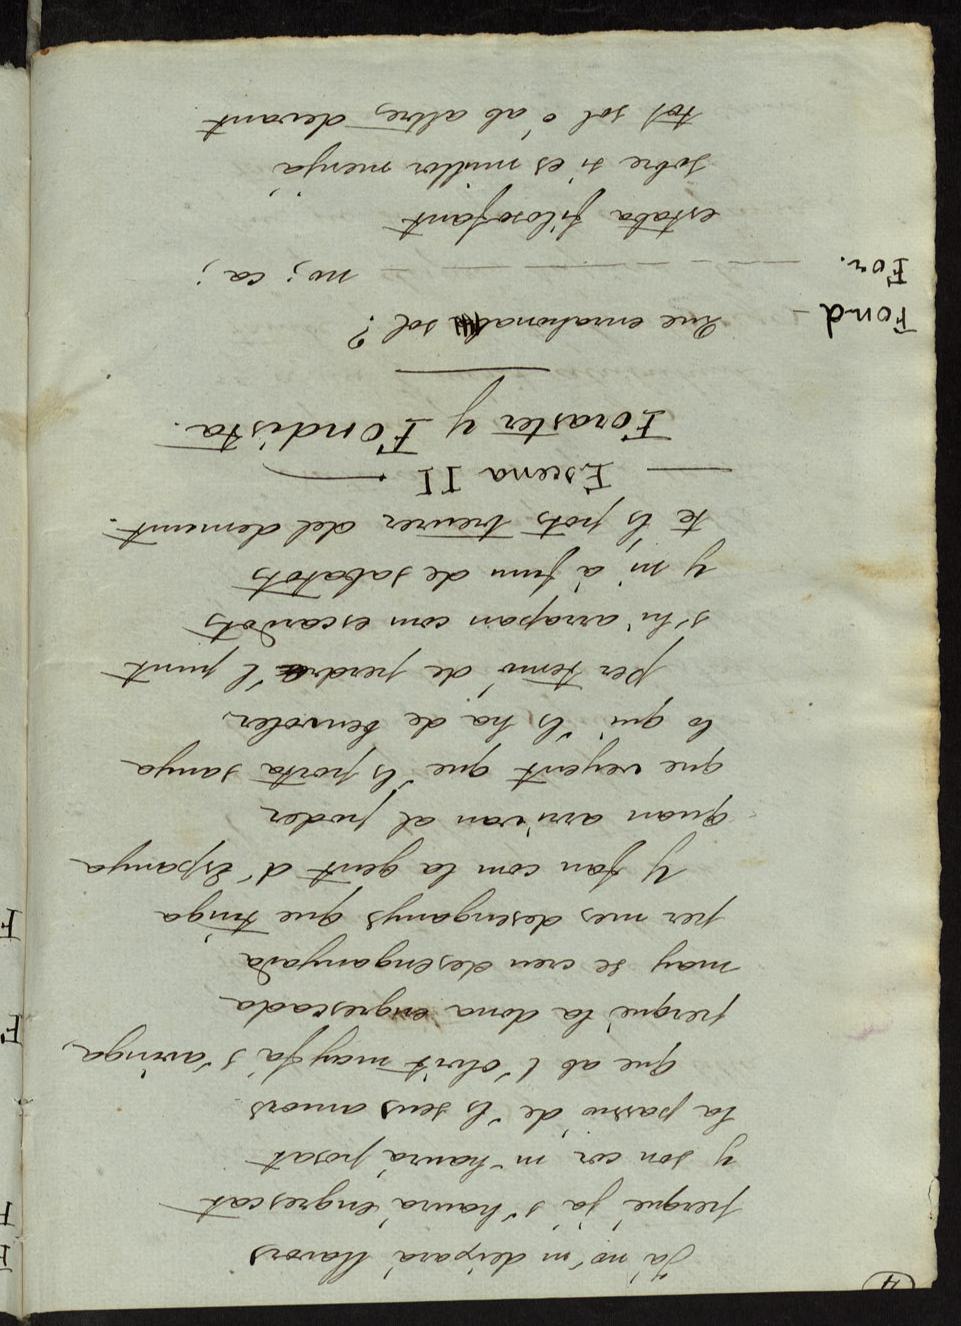 4
Ja no 'm deixará llavors
perque ja s' haurá engrescat
y son cor m' haurá posat
la passió de 'ls seus amors
que ab l' olvit may fá s' avinga,
perqué la dona engrescada
may se creu desenganyada
per mes desenganys que tinga
Y fan com la gent d' Espanya
quan arrivan al poder
que veyent que 'ls porta sanya
lo qui 'ls ha de benvoler,
per temó de perdre 'l punt
s' hi arrapan com escarbots
y ni á fum de sabatots
te 'ls pots treurer del demunt.
Escena II
Foraster y Fondista.
Fond - Que enrahona sol?
For. no; ca;
estaba filosofant
sobre si es millor menjá
tot sol ó ab altres devant